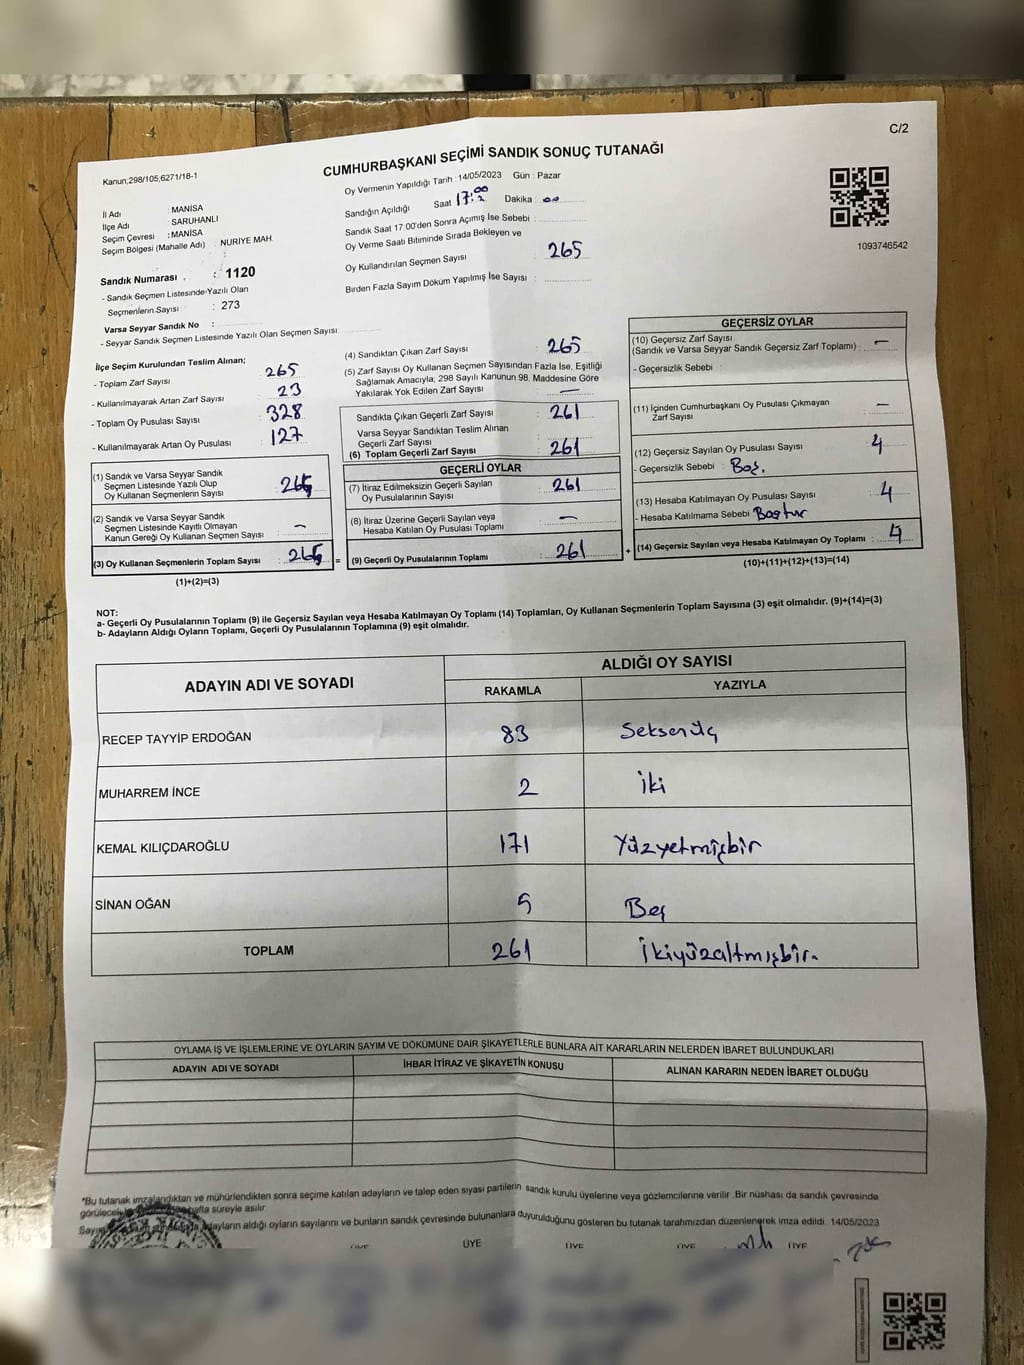 C/2
Kanun;298/105;6271/18-1
CUMHURBAŞKANI SEÇİMİ SANDIK SONUÇ TUTANAĞI
Oy Vermenin Yapıldığı Tarih : 14/05/2023 Gün : Pazar
İl Adı : MANİSA
İlçe Adı : SARUHANLI
Seçim Çevresi : MANİSA
Seçim Bölgesi (Mahalle Adı) : NURİYE MAH.
Sandığın Açıldığı Saat 17:00 Dakika :
Sandık Saat 17:00'den Sonra Açımış İse Sebebi :
Oy Verme Saati Bitiminde Sırada Bekleyen ve
Oy Kullandırılan Seçmen Sayısı : 265
Birden Fazla Sayım Döküm Yapılmış İse Sayısı :
1093746542
Sandık Numarası : 1120
- Sandık Seçmen Listesinde Yazılı Olan
Seçmenlerin Sayısı : 273
Varsa Seyyar Sandık No :
- Seyyar Sandık Seçmen Listesinde Yazılı Olan Seçmen Sayısı
İlçe Seçim Kurulundan Teslim Alınan;
- Toplam Zarf Sayısı : 265
- Kullanılmayarak Artan Zarf Sayısı : 23
- Toplam Oy Pusulası Sayısı : 328
- Kullanılmayarak Artan Oy Pusulası : 127
(1) Sandık ve Varsa Seyyar Sandık
Seçmen Listesinde Yazılı Olup
Oy Kullanan Seçmenlerin Sayısı : 265
(2) Sandık ve Varsa Seyyar Sandık
Seçmen Listesinde Kayıtlı Olmayan
Kanun Gereği Oy Kullanan Seçmen Sayısı : -
(3) Oy Kullanan Seçmenlerin Toplam Sayısı : 265 =
(1)+(2)=(3)
(4) Sandıktan Çıkan Zarf Sayısı : 265
(5) Zarf Sayısı Oy Kullanan Seçmen Sayısından Fazla İse, Eşitliği
Sağlamak Amacıyla; 298 Sayılı Kanunun 98. Maddesine Göre
Yakılarak Yok Edilen Zarf Sayısı : -
Sandıkta Çıkan Geçerli Zarf Sayısı : 261
Varsa Seyyar Sandıktan Teslim Alınan
Geçerli Zarf Sayısı :
(6) Toplam Geçerli Zarf Sayısı : 261
GEÇERLİ OYLAR
(7) İtiraz Edilmeksizin Geçerli Sayılan
Oy Pusulalarının Sayısı : 261
(8) İtiraz Üzerine Geçerli Sayılan veya
Hesaba Katılan Oy Pusulası Toplamı : -
(9) Geçerli Oy Pusulalarının Toplamı : 261 +
GEÇERSİZ OYLAR
(10) Geçersiz Zarf Sayısı
(Sandık ve Varsa Seyyar Sandık Geçersiz Zarf Toplamı) : -
- Geçersizlik Sebebi :
(11) İçinden Cumhurbaşkanı Oy Pusulası Çıkmayan
Zarf Sayısı : -
(12) Geçersiz Sayılan Oy Pusulası Sayısı : 4
- Geçersizlik Sebebi : Boş.
(13) Hesaba Katılmayan Oy Pusulası Sayısı : 4
- Hesaba Katılmama Sebebi : Boştur
(14) Geçersiz Sayılan veya Hesaba Katılmayan Oy Toplamı : 4
(10)+(11)+(12)+(13)=(14)
NOT:
a- Geçerli Oy Pusulalarının Toplamı (9) ile Geçersiz Sayılan veya Hesaba Katılmayan Oy Toplamı (14) Toplamları, Oy Kullanan Seçmenlerin Toplam Sayısına (3) eşit olmalıdır. (9)+(14)=(3)
b- Adayların Aldığı Oyların Toplamı, Geçerli Oy Pusulalarının Toplamına (9) eşit olmalıdır.
ADAYIN ADI VE SOYADI
ALDIĞI OY SAYISI
RAKAMLA YAZIYLA
RECEP TAYYİP ERDOĞAN 83 Seksenüç
MUHARREM İNCE 2 İki
KEMAL KILIÇDAROĞLU 171 Yüzyetmişbir
SİNAN OĞAN 5 Beş
TOPLAM 261 İkiyüzaltmışbir.
OYLAMA İŞ VE İŞLEMLERİNE VE OYLARIN SAYIM VE DÖKÜMÜNE DAİR ŞİKAYETLERLE BUNLARA AİT KARARLARIN NELERDEN İBARET BULUNDUKLARI
ADAYIN ADI VE SOYADI İHBAR İTİRAZ VE ŞİKAYETİN KONUSU ALINAN KARARIN NEDEN İBARET OLDUĞU
*Bu tutanak imzalandıktan ve mühürlendikten sonra seçime katılan adayların ve talep eden siyasi partilerin sandık kurulu üyelerine veya gözlemcilerine verilir. Bir nüshası da sandık çevresinde
hafta süreyle asılır.
adayların aldığı oyların sayılarını ve bunların sandık çevresinde bulunanlara duyurulduğunu gösteren bu tutanak tarafımızdan düzenlenerek imza edildi. 14/05/2023
ÜYE ÜYE ÜYE ÜYE ÜYE